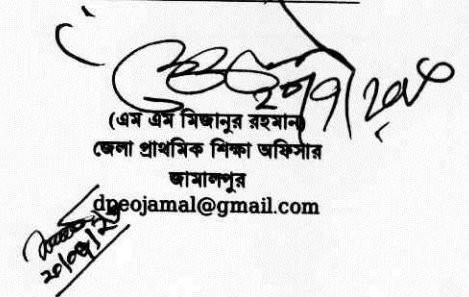 (এম এম মিজানুর রহমান)
জেলা প্রাথমিক শিক্ষা অফিসার
জামালপুর
dpeojamal@gmail.com